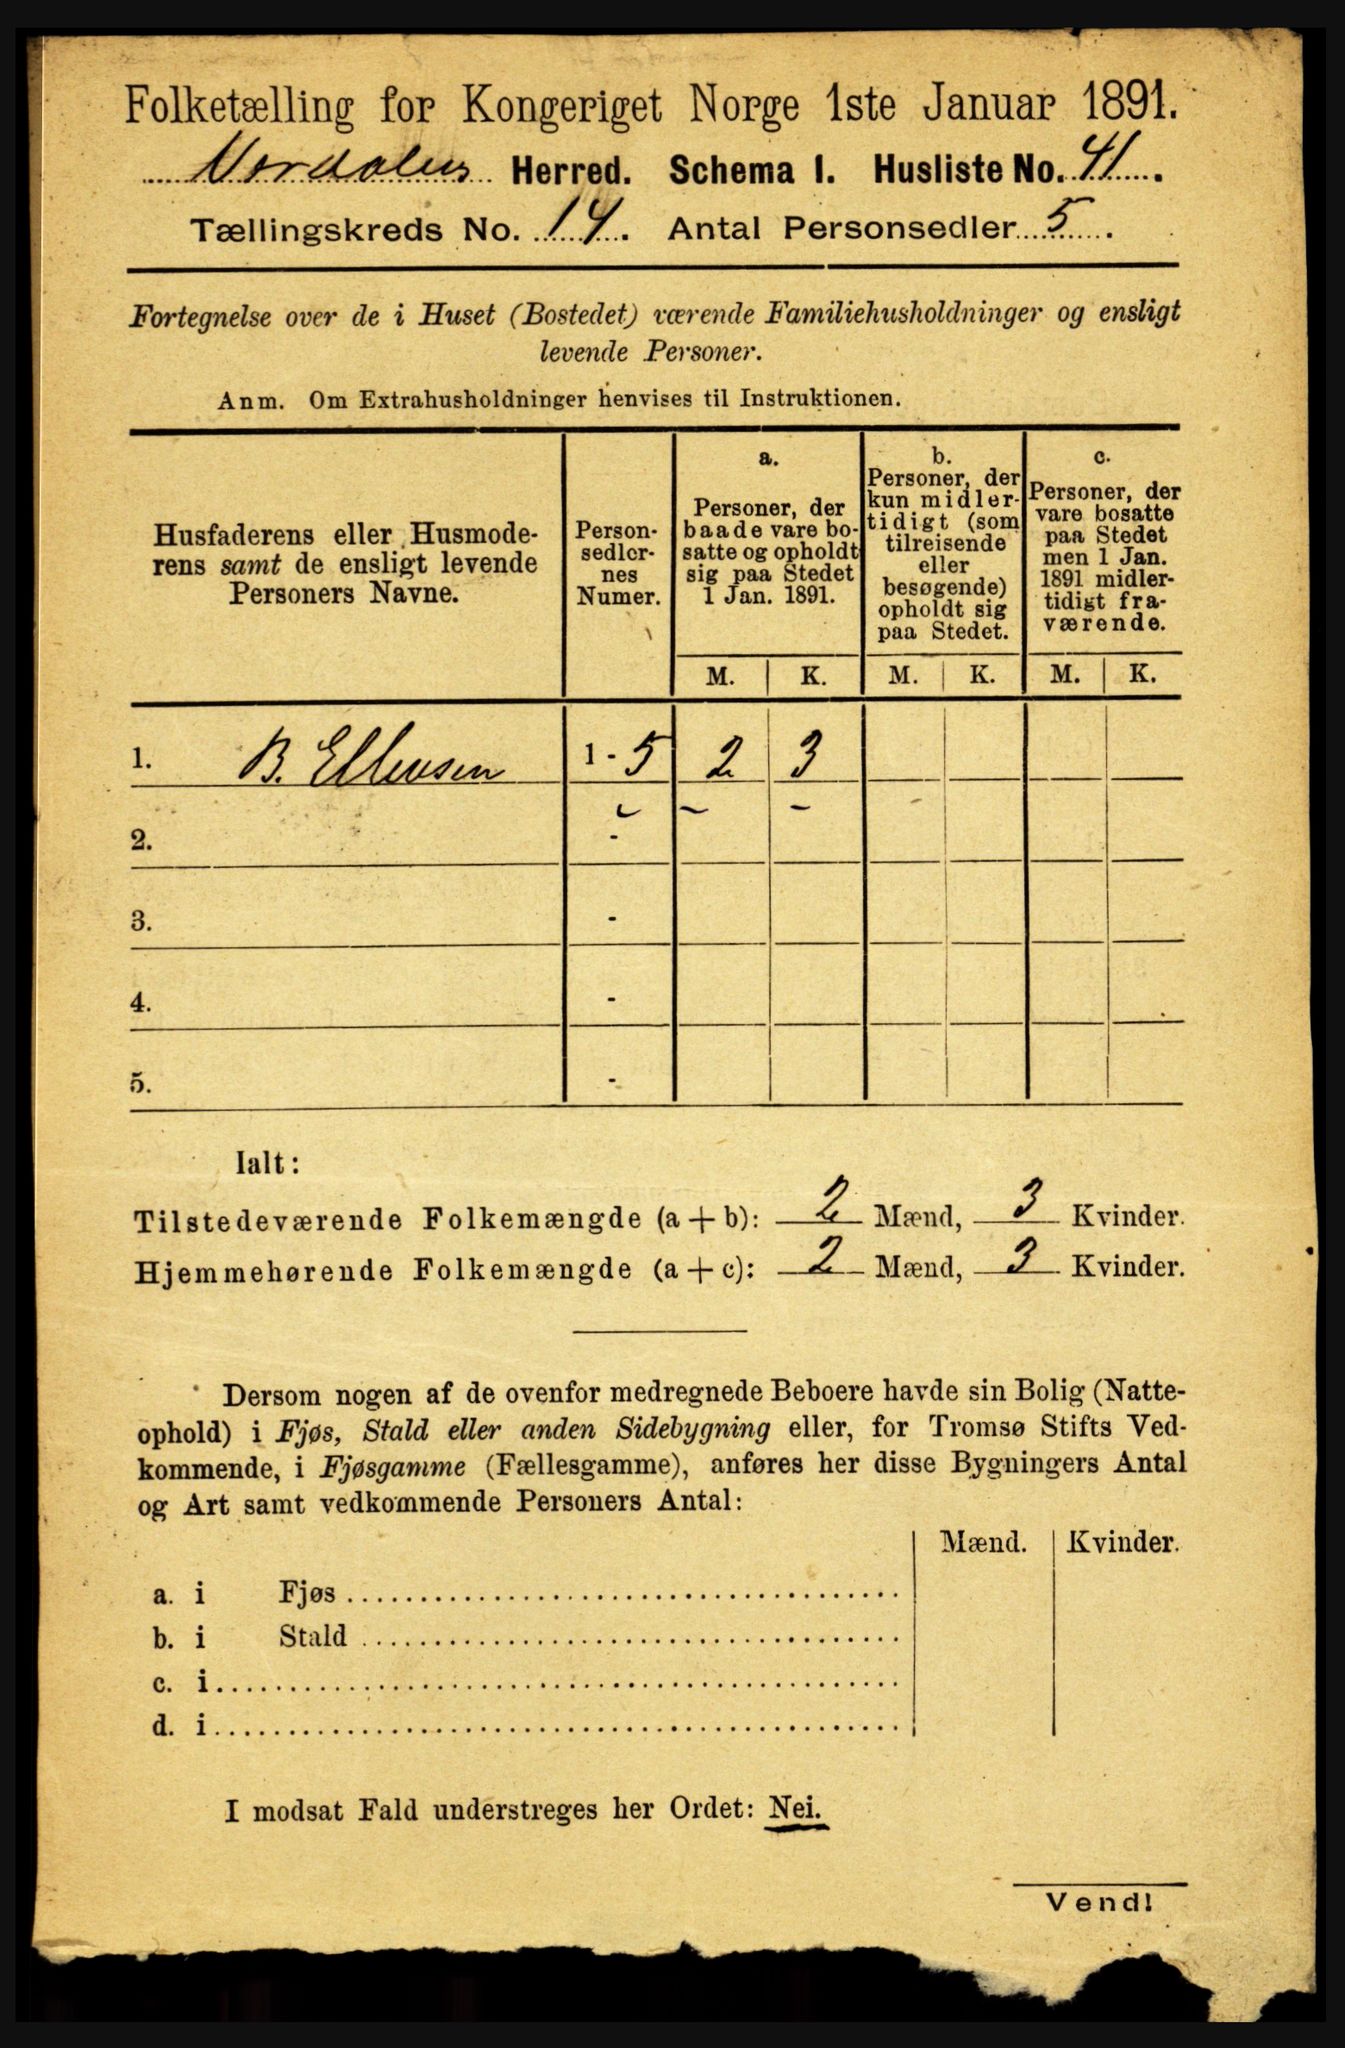 Folketælling for Kongeriget Norge 1ste Januar 1891.
Nordalens Herred. Schema 1. Husliste No. 41.
Tællingskreds No. 14. Antal Personsedler 5.
Fortegnelse over de i Huset (Bostedet) værende Familiehusholdninger og ensligt
levende Personer.
Anm. Om Extrahusholdninger henvises til Instruktionen.
Husfaderens eller Husmode-
rens samt de ensligt levende
Personers Navne.
Person-
sedler-
nes
Numer.
a.
Personer, der
baade vare bo-
satte og opholdt
sig paa Stedet
1 Jan. 1891.
b.
Personer, der
kun midler-
tidigt (som
tilreisende
eller
besøgende)
opholdt sig
paa Stedet.
c.
Personer, der
vare bosatte
paa Stedet
men 1 Jan.
1891 midler-
tidigt fra-
værende.
M. K. M. K. M. K.
1. B. Ellensen 1 - 5 2 3
2. -
3. -
4. -
5. -
Ialt:
Tilstedeværende Folkemængde (a + b): 2 Mænd, 3 Kvinder.
Hjemmehørende Folkemængde (a + c): 2 Mænd, 3 Kvinder.
Dersom nogen af de ovenfor medregnede Beboere havde sin Bolig (Natte-
ophold) i Fjøs, Stald eller anden Sidebygning eller, for Tromsø Stifts Ved-
kommende, i Fjøsgamme (Fællesgamme), anføres her disse Bygningers Antal
og Art samt vedkommende Personers Antal:
Mænd. Kvinder.
a. i Fjøs
b. i Stald
c. i
d. i
I modsat Fald understreges her Ordet: Nei.
Vend!